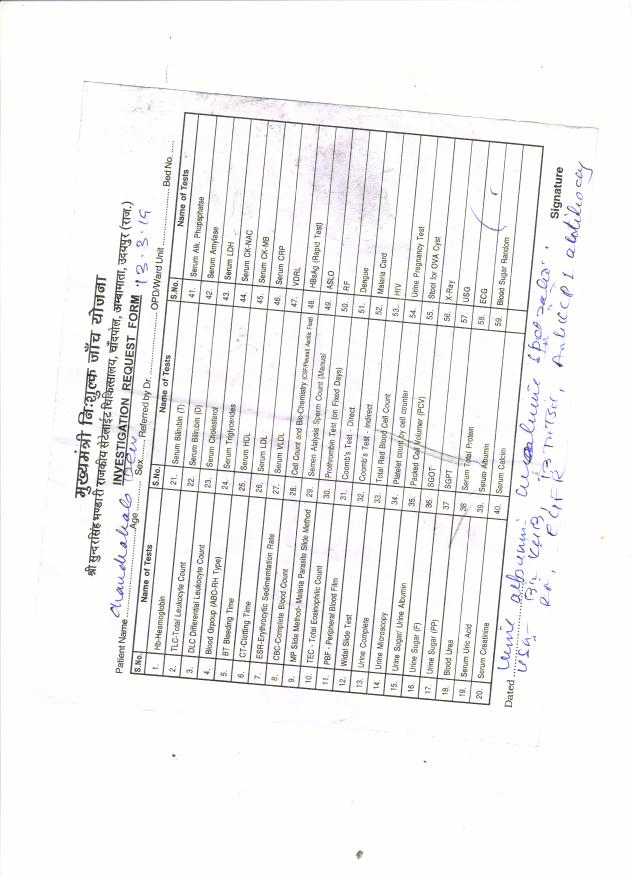 मुख्यमंत्री निःशुल्क जाँच योजना
श्री सुन्दरसिंह भण्डारी राजकीय सेटेलाईट चिकित्सालय, चाँदपोल, अम्बामाता, उदयपुर (राज.)
INVESTIGATION REQUEST FORM 13.3.19
Patient Name Age Sex Referred by Dr. OPD/Ward Unit Bed No.
S.No. Name of Tests S.No. Name of Tests S.No. Name of Tests
1. Hb-Heamoglobin 21. Serum Bilinbin (T) 41. Serum Alk. Phopsphatse
2. TLC-Total Leukocyte Count 22. Serum Bilinbin (D) 42. Serum Amylase
3. DLC Differential Leukocyte Count 23. Serum Cholesterol 43. Serum LDH
4. Blood Grpoup (ABO-RH Type) 24. Serum Triglycerides 44. Serum CK-NAC
5. BT Bleeding Time 25. Serum HDL 45. Serum CK-MB
6. CT-Clotting Time 26. Serum LDL 46. Serum CRP
7. ESR-Erythrocytic Sedimemtation Rate 27. Serum VLDL 47. VDRL
8. CBC-Complete Blood Count 28. Cell Count and Bio-Chemistry (CSF/Pleural / Ascitic Fluid) 48. HBsAg (Rapid Test)
9. MP Slide Method- Malaria Parasite Slide Method 29. Semen Alalysis Sperm Count (Manual 49. ASLO
10. TEC - Total Eosinophilic Count 30. Prothrombin Test (on Fixed Days) 50. RF
11. PBF - Peripheral Blood Film 31. Coomb's Test - Direct 51. Dengue
12. Widal Slide Test 32. Coomb's Test - Indirect 52. Malena Card
13. Urine Complete 33. Total Red Blood Cell Count 53. HIV
14. Urine Microscopy 34. Platelet count by cell counter 54. Urine Pregnancy Test
15. Urine Sugar/ Urine Albumin 35. Packed Cell Volumer (PCV) 55. Stool for OVA Cyst
16. Urine Sugar (F) 36. SGOT 56. X-Ray
17. Urine Sugar (PP) 37. SGPT 57. USG
18. Blood Urea 38. Serum Total Protein 58. ECG
19. Serum Uric Acid 39. Serum Albumin 59. Blood Sugar Random
20. Serum Creatinine 40. Serum Calcim
Dated Signature
Urine albumin
USG
EGFR antibody